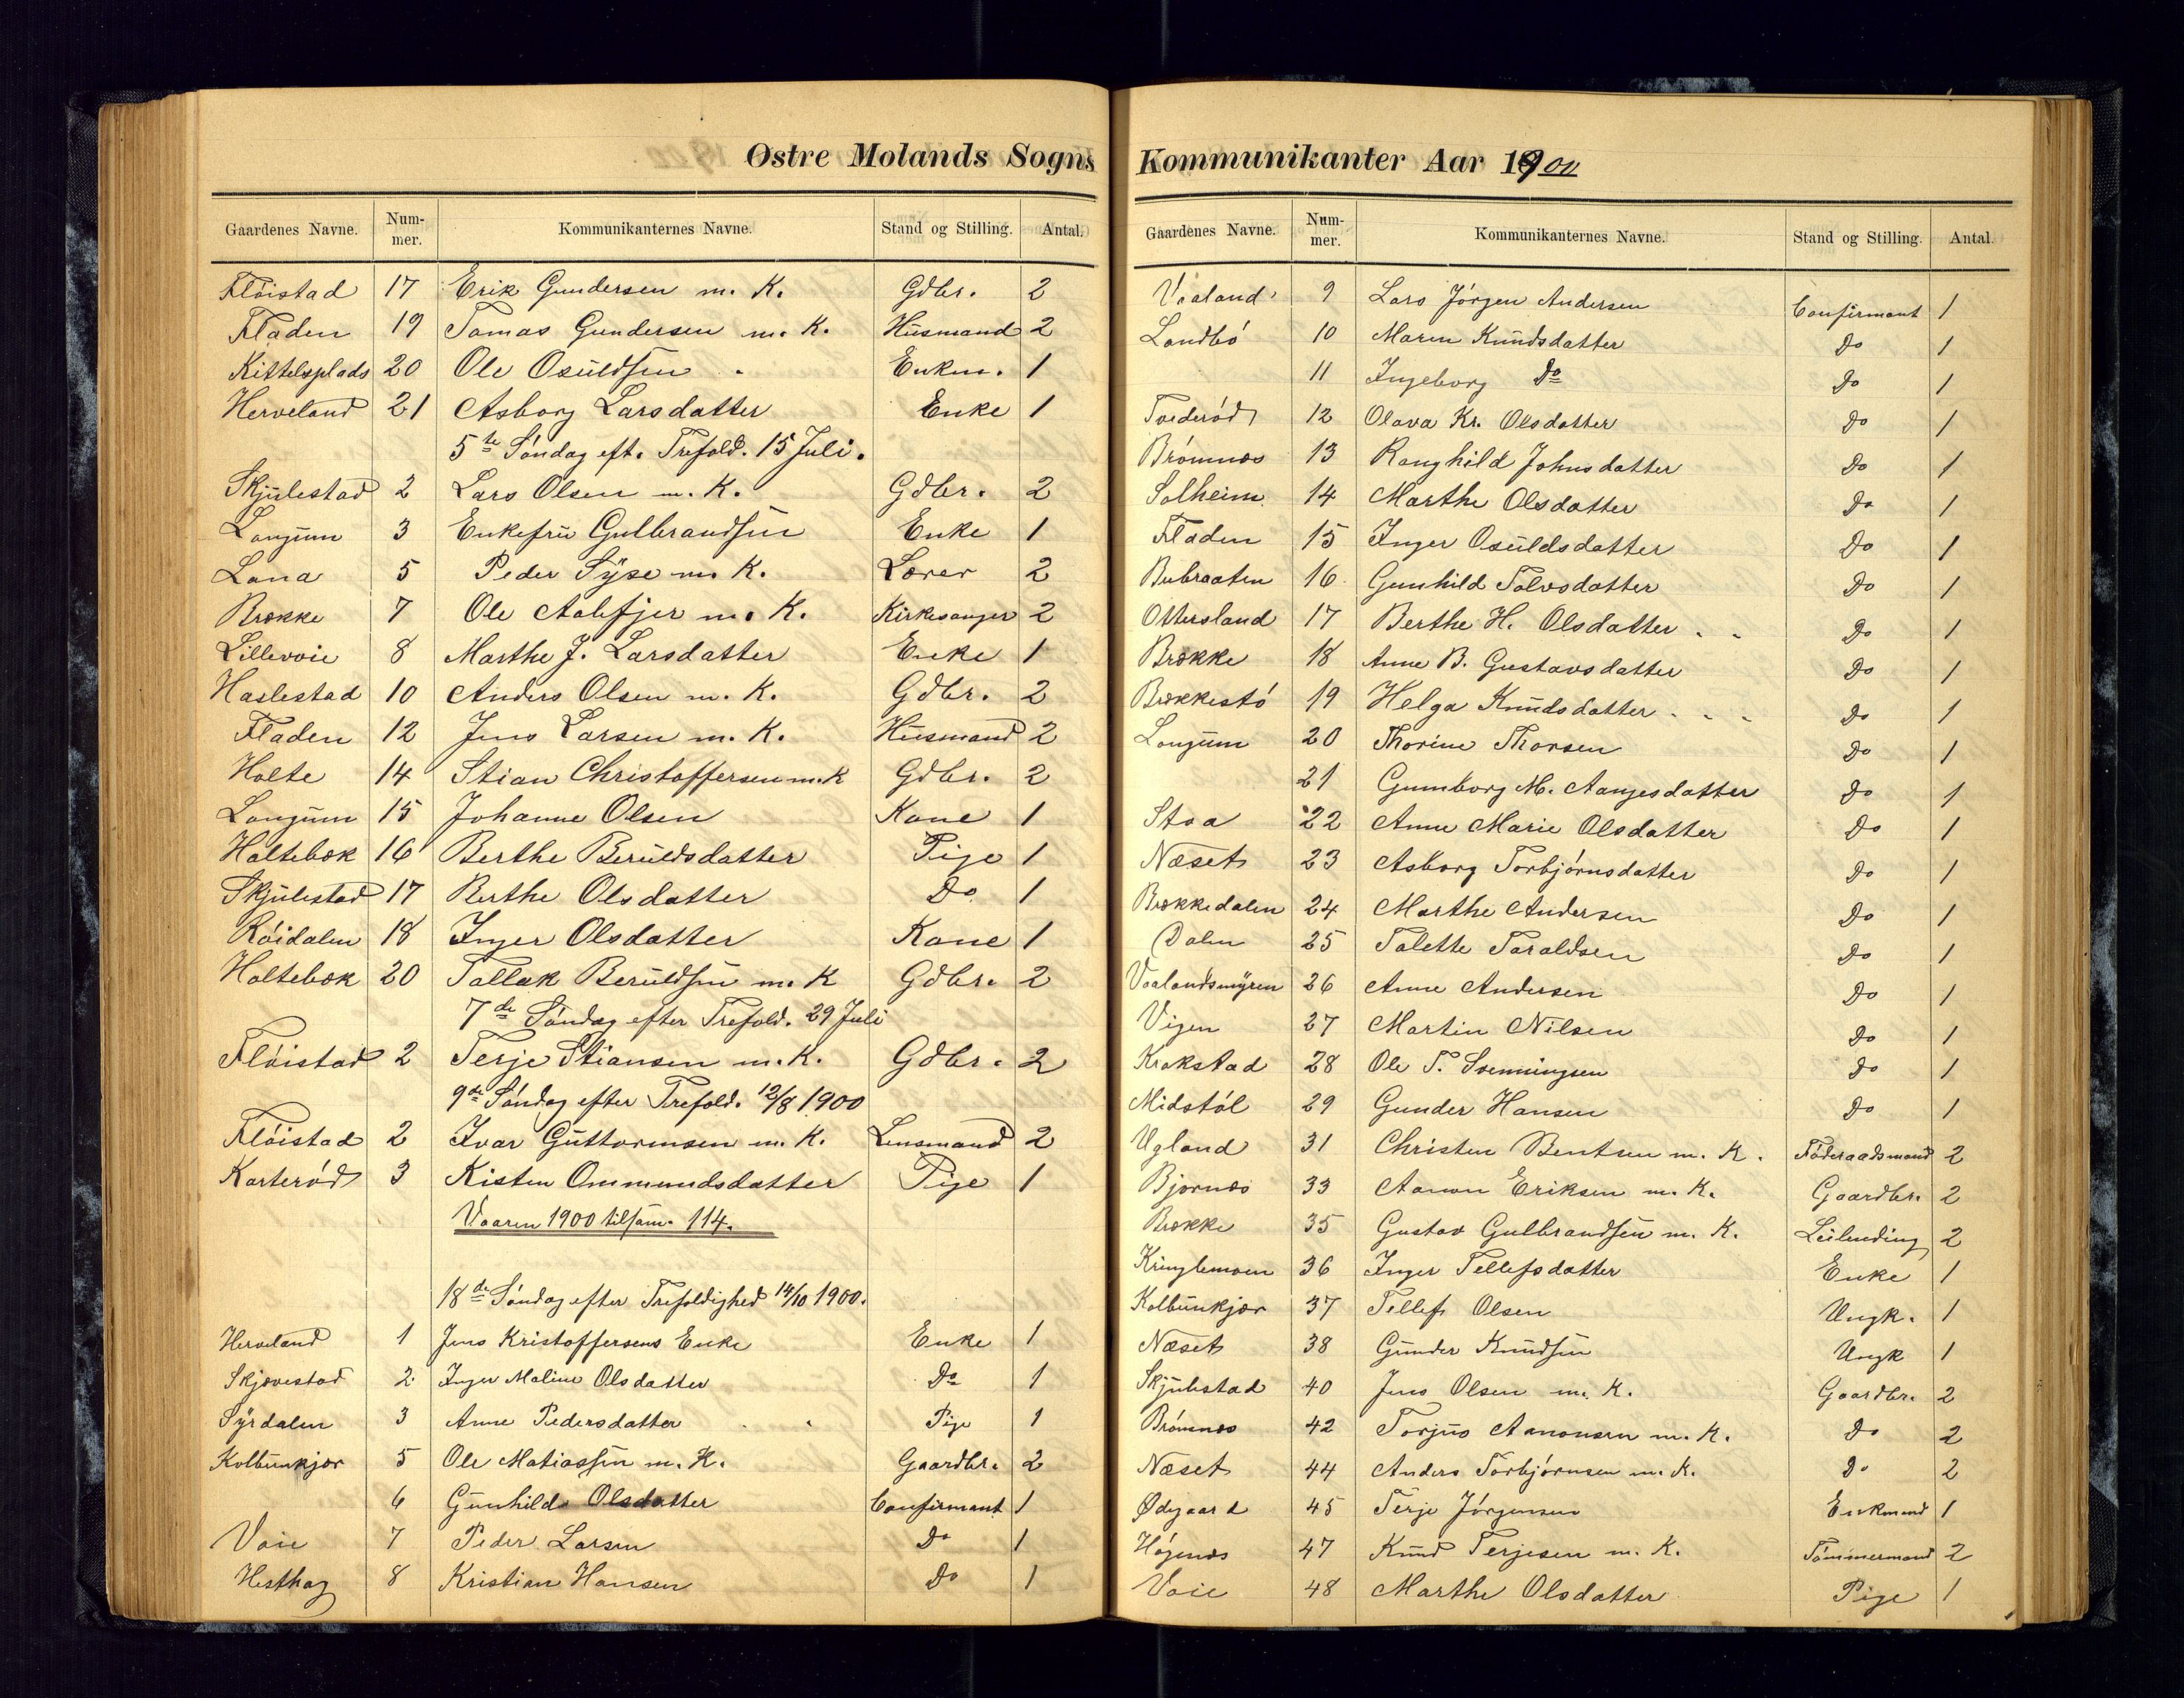 Østre Molands Sogns
Gaardenes Navne. Num-mer. Kommunikanternes Navne. Stand og Stilling. Antal.
Flöistad 17 Erik Gundersen m. K. Gdbr. 2
Fladen 19 Tomas Gundersen m. K. Husmand 2
Kittelsplads 20 Ole Osuldsen Enkm. 1
Herveland 21 Asborg Larsdatter Enke 1
5te Söndag eft. Trefold. 15 Juli.
Skjulestad 2 Lars Olsen m. K. Gdbr. 2
Longum 3 Enkefru Gulbrandsen Enke 1
Lona 5 Peder Syse m. K. Lærer 2
Brække 7 Ole Aalefjer m. K. Kirkesanger 2
Lillevoie 8 Marthe J. Larsdatter Enke 1
Haslestad 10 Anders Olsen m. K. Gdbr. 2
Fladen 12 Jens Larsen m. K. Husmand 2
Holte 14 Stian Christoffersen m. K Gdbr. 2
Longum 15 Johanne Olsen Kone 1
Holtebæk 16 Berthe Beruldsdatter Pige 1
Skjulestad 17 Berthe Olsdatter Do 1
Röidalen 18 Inger Olsdatter Kone 1
Holtebæk 20 Tallak Beruldsen m. K Gdbr. 2
7de Söndag efter Trefold. 29 Juli
Flöistad 2 Terje Stiansen m. K. Gdbr. 2
9de Söndag efter Trefold. 12/8 1900
Flöistad 2 Ivar Guttormsen m. K. Lensmand 2
Karteröd 3 Kisten Ommundsdatter Pige 1
Vaaren 1900 tilsam. 114.
18de Söndag efter Trefoldighed 14/10 1900.
Herveland 1 Jens Kristoffersens Enke Enke 1
Skjævestad 2 Inger Maline Olsdatter Do 1
Syrdalen 3 Anne Pedersdatter Pige 1
Kolbunkjær 5 Ole Matiassen m. K. Gaardbr. 2
6 Gunhild Olsdatter Confirmant 1
Voie 7 Peder Larsen Do 1
Hesthag 8 Kristian Hansen Do 1
Kommunikanter Aar 1900
Gaardenes Navne. Num-mer. Kommunikanternes Navne. Stand og Stilling. Antal.
Vaaland 9 Lars Jörgen Andersen Confirmant 1
Londbö 10 Maren Knudsdatter Do 1
11 Ingeborg Do Do 1
Tvederöd 12 Olava Kr. Olsdatter Do 1
Brömnæs 13 Ranghild Johnsdatter Do 1
Solheim 14 Marthe Olsdatter Do 1
Fladen 15 Inger Osuldsdatter Do 1
Bubraaten 16 Gunhild Tolvsdatter Do 1
Ottersland 17 Berthe H. Olsdatter Do 1
Brække 18 Anne B. Gustavsdatter Do 1
Brækkestö 19 Helga Knudsdatter Do 1
Longum 20 Thorine Thorsen Do 1
21 Gumborg M. Aanjesdatter Do 1
Stoa 22 Anne Marie Olsdatter Do 1
Næset 23 Asborg Torbjörnsdatter Do 1
Brækkedalen 24 Marthe Andersen Do 1
Dalen 25 Talette Taraldsen Do 1
Vaalandsmyren 26 Anne Andersen Do 1
Vigen 27 Martin Nilsen Do 1
Krokstad 28 Ole T. Svenningsen Do 1
Midstöl 29 Gunder Hansen Do 1
Ugland 31 Christen Bentsen m. K. Föderaadsmand 2
Bjornæs 33 Aanon Eriksen m. K. Gaardbr. 2
Brække 35 Gustav Gulbrandsen m. K. Leilending 2
Kringlemoen 36 Inger Tellefsdatter Enke 1
Kolbunkjær 37 Tellefs Olsen Ungk. 1
Næset 38 Gunder Knudsen Ungk 1
Skjulestad 40 Jens Olsen m. K. Gaardbr. 2
Brömnæs 42 Torjus Aanonsen m. K. Do 2
Næset 44 Anders Torbjörnsen m. K. Do 2
Ødegaard 45 Terje Jörgensen Enkmand 1
Högenæs 47 Knud Terjesen m. K. Tömmermand 2
Voie 48 Marthe Olsdatter Pige 1